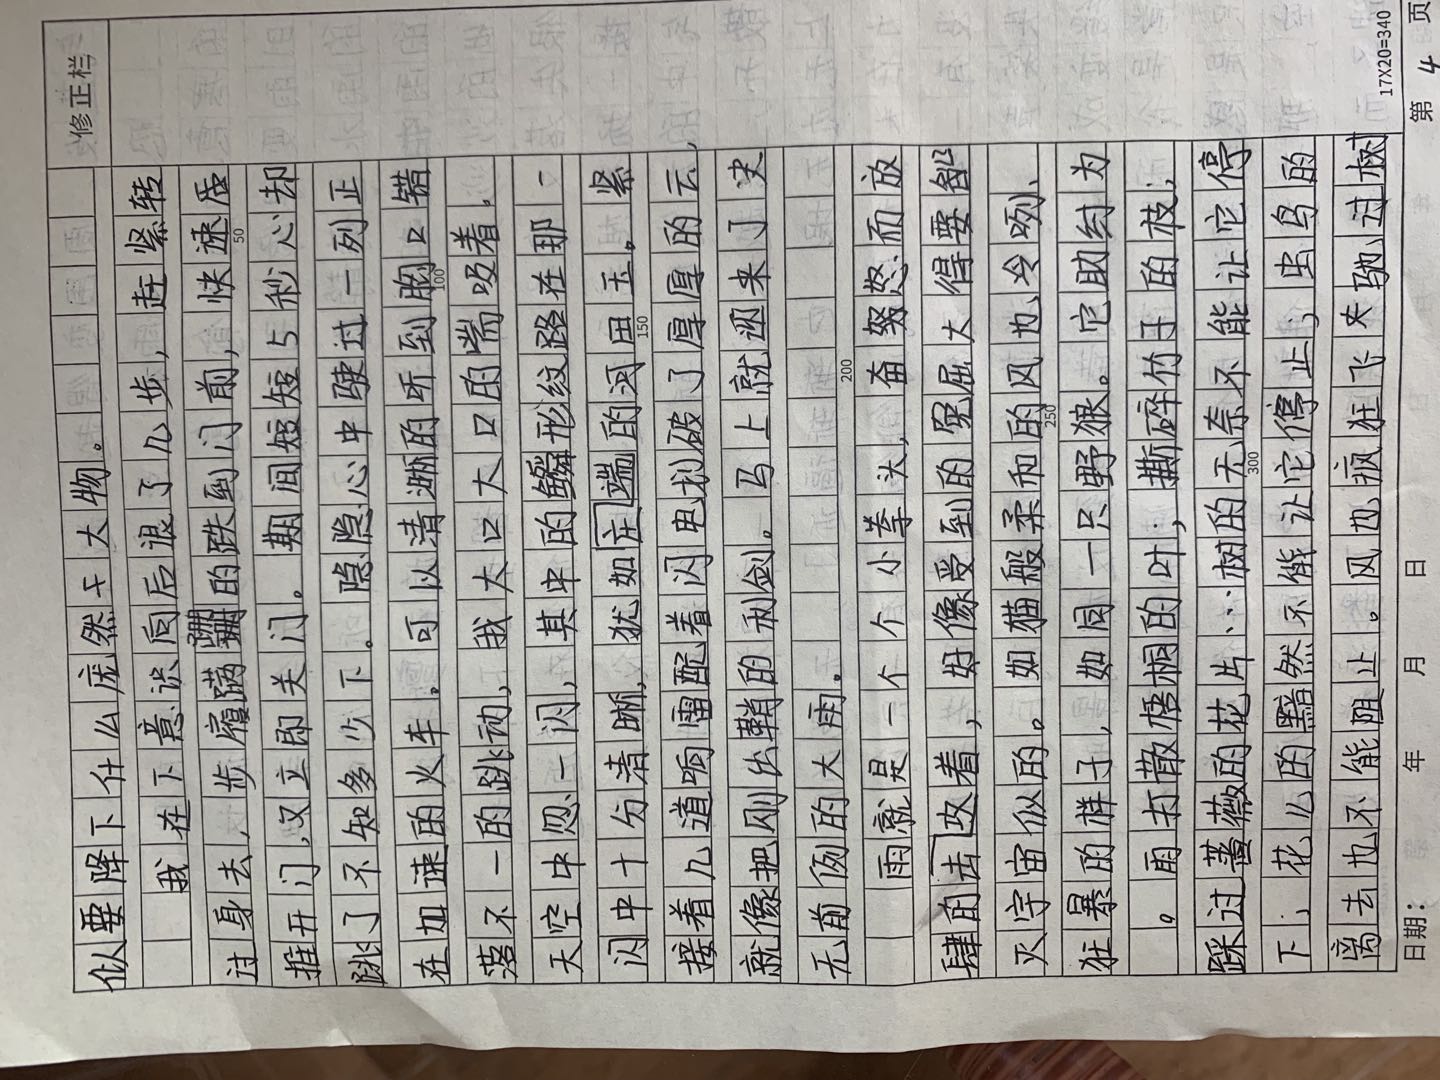 修正栏
似要降下什么庞然大物。
我在下意识向后退了几步，赶紧转
过身去，步履蹒跚的跌到门前，快速
推开门，又立即关门。期间短短5秒心却
跳了不知多少下。隐隐心中驶过一列正
在加速的火车。可以清渐的听到胸口错
落不一的跳动，我大口大口的喘吸着。
天空中忽一闪，其中的鳞形纹路在那一
闪中十分清晰，犹如庄端的河田玉。紧
接着几道响雷配着闪电划破了厚厚的云，
就像把刚出鞘的利剑。马上就迎来了史
无前例的大雨。
雨就是一个个小拳头，奋努怒而放
肆的击改着，好像受到的冤屈大得要
灭宇宙似的。如猫般柔和的风也冷咧、
狂暴的样子，如同一只野狼。它助纣为
。雨打散梧桐的叶；撕碎竹子的枝；
踩过蔷薇的花片…树的无奈不能让它停
下；花儿的黯然不能让它停止；虫鸟的
离去也不能阻止。风也疯狂飞来驰过
50
100
150
200
250
300
17X20=340
日期： 年 月 日 第 4 页